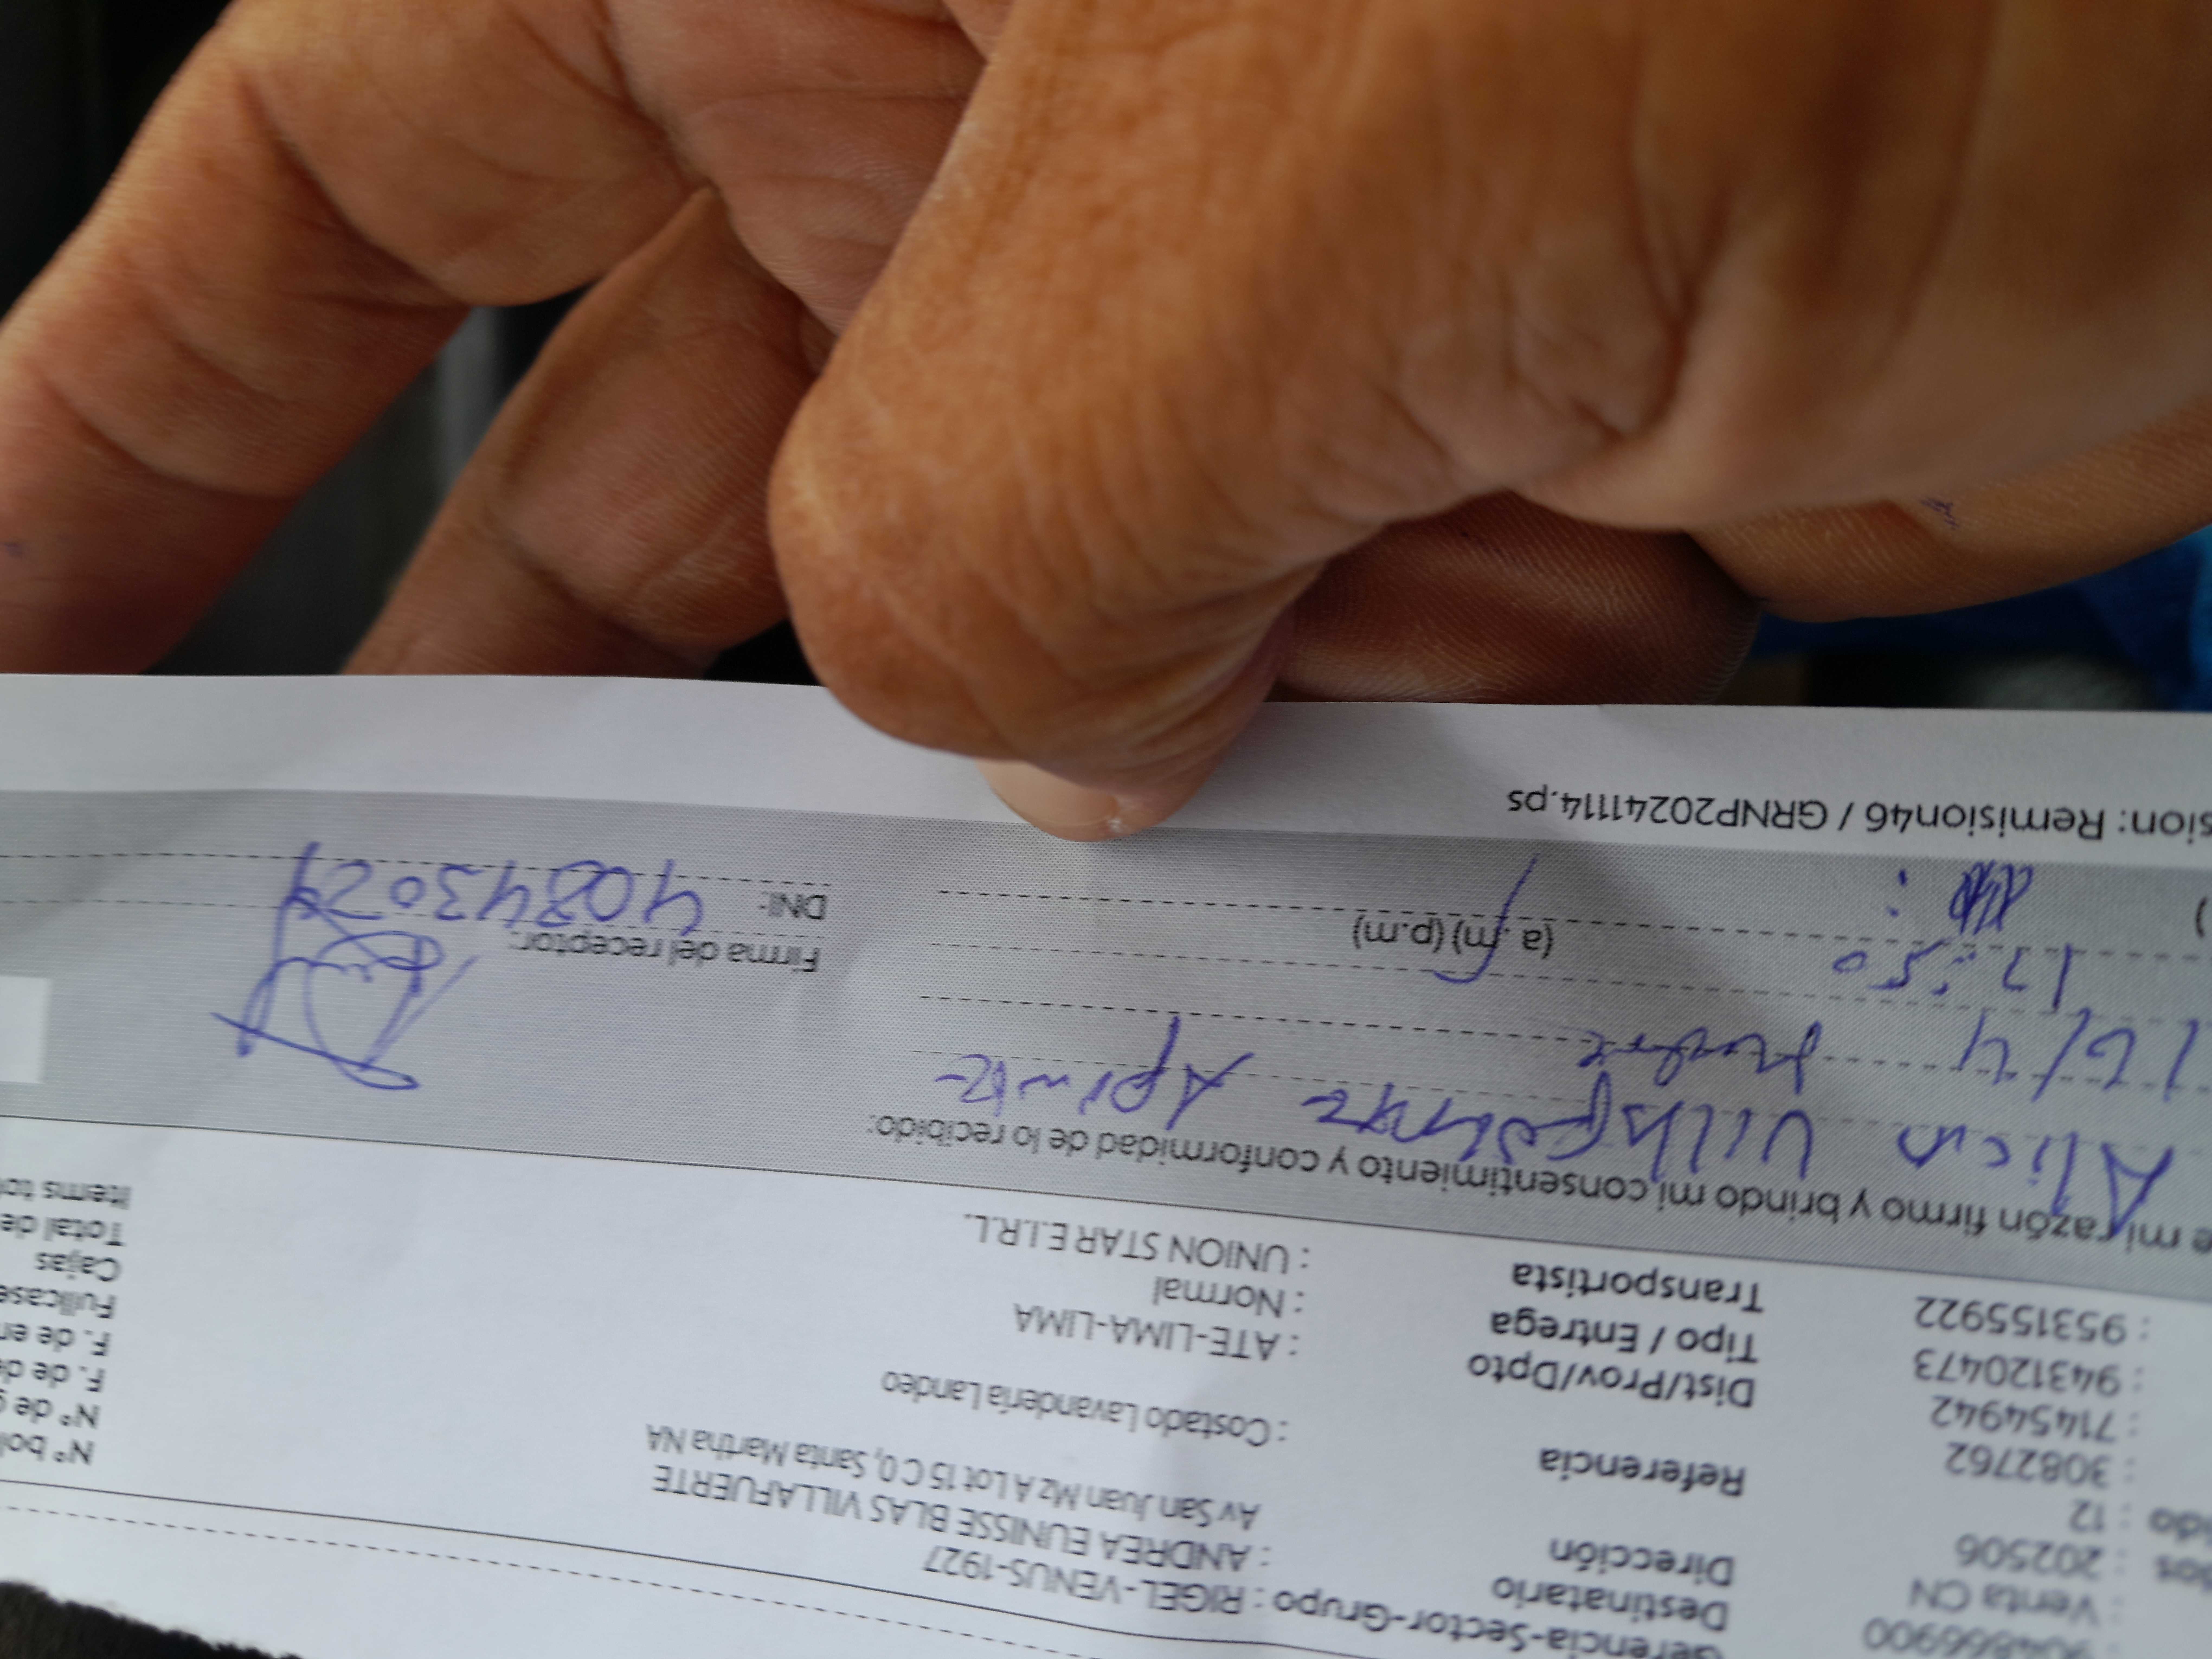 904866900
Gerencia-Sector-Grupo : RIGEL-VENUS-1927
: Venta CN
Destinatario : ANDREA EUNISSE BLAS VILLAFUERTE
: 202506
Dirección Av San Juan Mz A Lot 15 C 0, Santa Martha NA
: 12
Nº bol
: 3082762
Referencia : Costado Lavandería Landeo
Nº de g
: 71454942
Dist/Prov/Dpto : ATE-LIMA-LIMA
F. de de
: 943120473
Tipo / Entrega : Normal
F. de en
: 953155922
Transportista : UNION STAR E.I.R.L.
Fullcase
Cajas
Total de
Items to
e mi razón firmo y brindo mi consentimiento y conformidad de lo recibido:
Alicia Villafuerte Aponte
16/4 Madre
17:50 (a.m) (p.m)
Firma del receptor:
DNI: 40843024
sion: Remision46 / GRNP20241114.ps